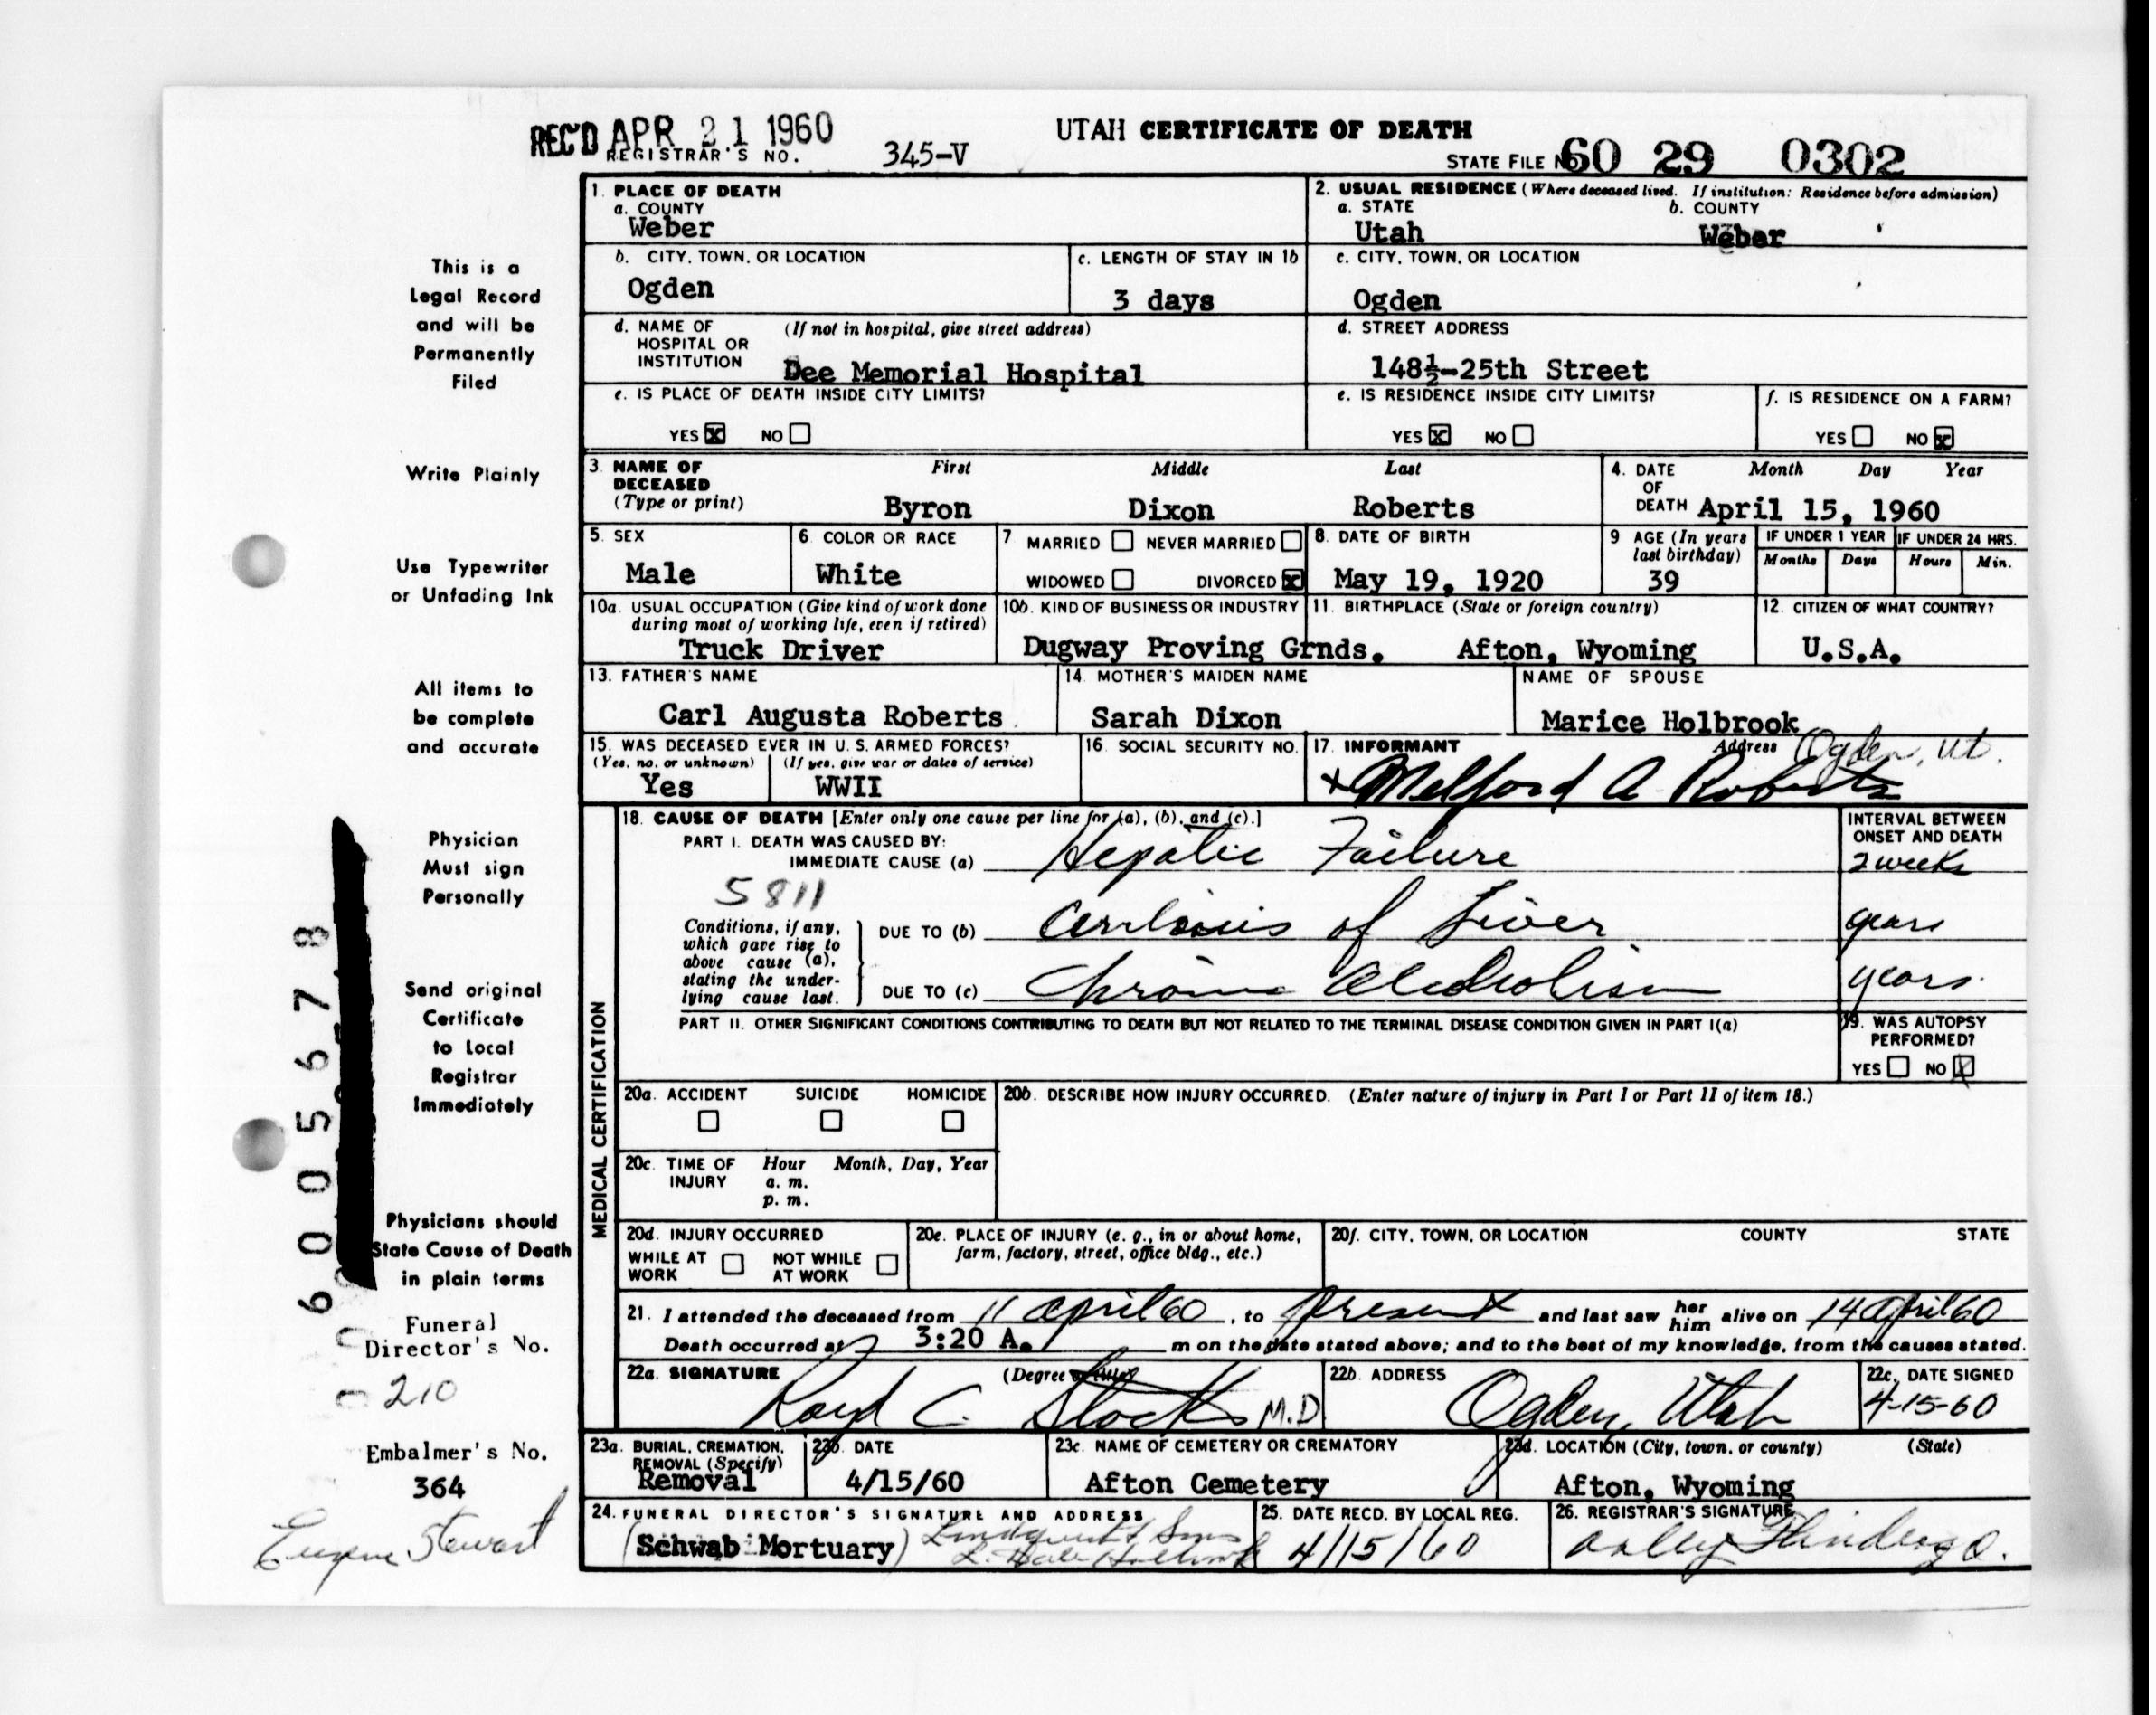 REC'D APR 21 1960
UTAH CERTIFICATE OF DEATH
REGISTRAR'S NO. 345-V
STATE FILE No. 60 29 0302
This is a
Legal Record
and will be
Permanently
Filed
Write Plainly
Use Typewriter
or Unfading Ink
All items to
be complete
and accurate
Physician
Must sign
Personally
Send original
Certificate
to Local
Registrar
Immediately
Physicians should
State Cause of Death
in plain terms
Funeral
Director's No.
210
Embalmer's No.
364
Eugene Stewart
60056778
1. PLACE OF DEATH
a. COUNTY
Weber
2. USUAL RESIDENCE (Where deceased lived. If institution: Residence before admission)
a. STATE b. COUNTY
Utah Weber
b. CITY, TOWN, OR LOCATION
Ogden
c. LENGTH OF STAY IN 1b
3 days
c. CITY, TOWN, OR LOCATION
Ogden
d. NAME OF (If not in hospital, give street address)
HOSPITAL OR
INSTITUTION Dee Memorial Hospital
d. STREET ADDRESS
148½-25th Street
e. IS PLACE OF DEATH INSIDE CITY LIMITS?
YES x NO
e. IS RESIDENCE INSIDE CITY LIMITS?
YES x NO
f. IS RESIDENCE ON A FARM?
YES NO x
3. NAME OF First Middle Last
DECEASED
(Type or print) Byron Dixon Roberts
4. DATE Month Day Year
OF
DEATH April 15, 1960
5. SEX
Male
6. COLOR OR RACE
White
7 MARRIED NEVER MARRIED
WIDOWED DIVORCED x
8. DATE OF BIRTH
May 19, 1920
9 AGE (In years
last birthday)
39
IF UNDER 1 YEAR
Months Days
IF UNDER 24 HRS.
Hours Min.
10a. USUAL OCCUPATION (Give kind of work done
during most of working life, even if retired)
Truck Driver
10b. KIND OF BUSINESS OR INDUSTRY
Dugway Proving Grnds.
11. BIRTHPLACE (State or foreign country)
Afton, Wyoming
12. CITIZEN OF WHAT COUNTRY?
U.S.A.
13. FATHER'S NAME
Carl Augusta Roberts
14. MOTHER'S MAIDEN NAME
Sarah Dixon
NAME OF SPOUSE
Marice Holbrook
15. WAS DECEASED EVER IN U.S. ARMED FORCES?
(Yes, no, or unknown) (If yes, give war or dates of service)
Yes WWII
16. SOCIAL SECURITY NO.
17. INFORMANT Address Ogden, Ut.
x Melford A Roberts
MEDICAL CERTIFICATION
18. CAUSE OF DEATH [Enter only one cause per line for (a), (b), and (c).]
PART I. DEATH WAS CAUSED BY:
IMMEDIATE CAUSE (a) Hepatic Failure
5811
Conditions, if any,
which gave rise to
above cause (a),
stating the under-
lying cause last.
DUE TO (b) Cirrhosis of Liver
DUE TO (c) Chronic Alcoholism
INTERVAL BETWEEN
ONSET AND DEATH
2 weeks
years
years.
PART II. OTHER SIGNIFICANT CONDITIONS CONTRIBUTING TO DEATH BUT NOT RELATED TO THE TERMINAL DISEASE CONDITION GIVEN IN PART I(a)
19. WAS AUTOPSY
PERFORMED?
YES NO x
20a. ACCIDENT SUICIDE HOMICIDE
20b. DESCRIBE HOW INJURY OCCURRED. (Enter nature of injury in Part I or Part II of item 18.)
20c. TIME OF Hour Month, Day, Year
INJURY a. m.
p. m.
20d. INJURY OCCURRED
WHILE AT NOT WHILE
WORK AT WORK
20e. PLACE OF INJURY (e. g., in or about home,
farm, factory, street, office bldg., etc.)
20f. CITY, TOWN, OR LOCATION COUNTY STATE
21. I attended the deceased from 11 April 60, to present and last saw her him alive on 14 April 60
Death occurred at 3:20 A. m on the date stated above; and to the best of my knowledge, from the causes stated.
22a. SIGNATURE (Degree or title)
Loyd C. Stocks M.D.
22b. ADDRESS
Ogden, Utah
22c. DATE SIGNED
4-15-60
23a. BURIAL, CREMATION,
REMOVAL (Specify)
Removal
23b. DATE
4/15/60
23c. NAME OF CEMETERY OR CREMATORY
Afton Cemetery
23d. LOCATION (City, town, or county) (State)
Afton, Wyoming
24. FUNERAL DIRECTOR'S SIGNATURE AND ADDRESS
(Schwab Mortuary) Lindquist & Sons
25. DATE RECD. BY LOCAL REG.
4/15/60
26. REGISTRAR'S SIGNATURE